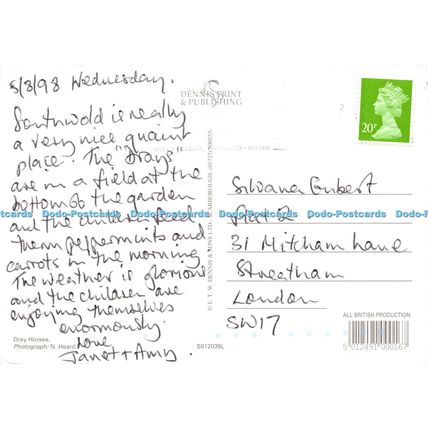 5/8/98 Wednesday.
Southwold is really
a very nice quaint
place. The "drays"
are in a field at the
bottom of the garden
and the children feed
them peppermints and
carrots in the morning
The weather is glorious
and the children are
enjoying themselves
enormously.
Love
Janet + Amy.
Dray Horses.
Photograph: N. Heard
S012039L
DENNIS PRINT
& PUBLISHING
© E. T. W. DENNIS & SONS LTD., SCARBOROUGH,
20P
Silvana
Flat 2
31 Mitcham Lane
Streatham
London
SW17
ALL BRITISH PRODUCTION
5 012491 000167
Dodo-Postcards Dodo-Postcards Dodo-Postcards Dodo-Postcards Dodo-Postcards